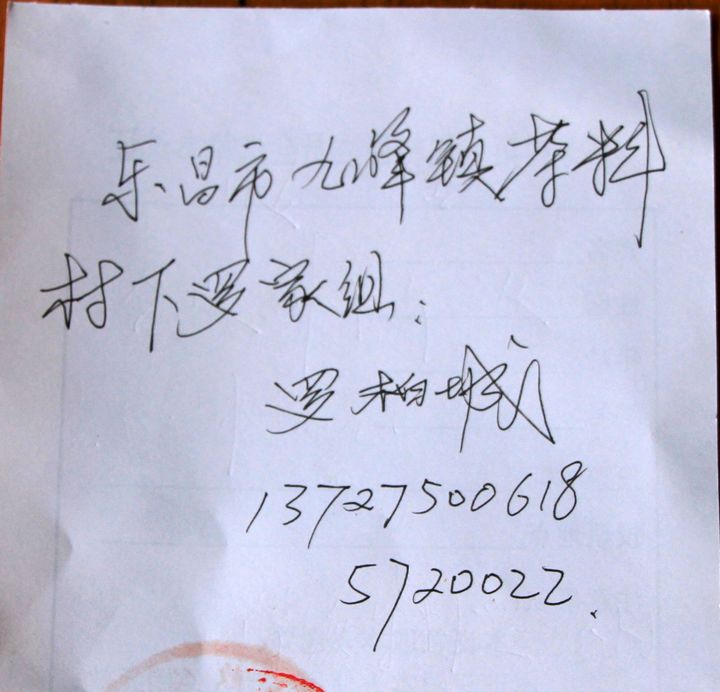 乐昌市九峰镇茶料
村下罗家组：
罗柏城
13727500618
5720022.